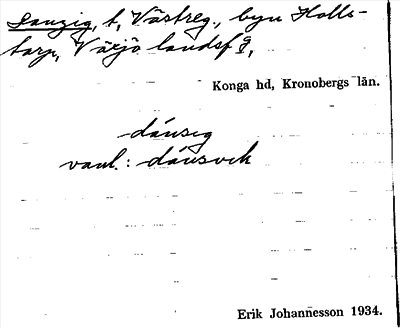 Danzig, t, Västreg., byn Holls-
torp, Växjö landsfg,
Konga hd, Kronobergs län.
dánsig
vanl.: dánsvik
Erik Johannesson 1934.